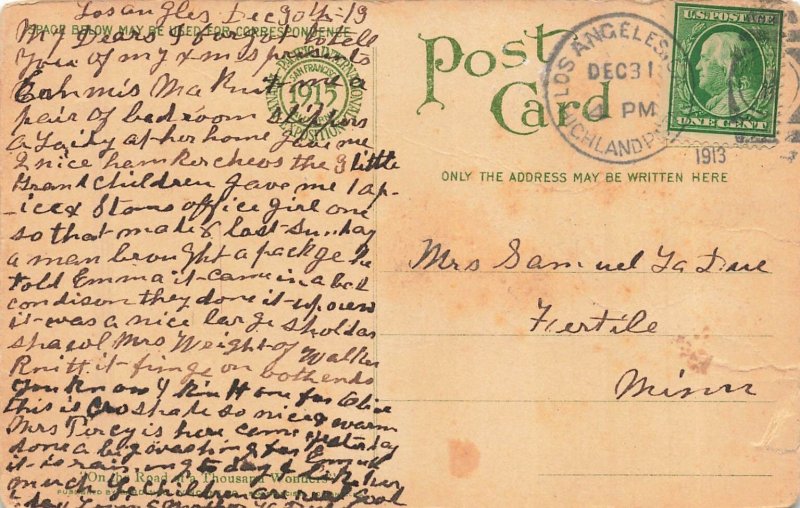 Los angles Dec 30th-13
SPACE BELOW MAY BE USED FOR CORRESPONDENCE
My Dears I forgot to tell
you of my xmis presents
Ma Knit me a
pair of bedroom slippers
a Laidy at her home gave me
2 nice hankercheves the 3 little
Grand Children gave me 1 ap-
-icex Stams office girl one
so that makes 6 last Sunday
a man brought a packge he
told Emma it came in a bad
condison they done it up over
it was a nice large sholdar
shawl Mrs Weight of Walker
Knitt it finge on both ends
you know I knitt one for Olive
this is shape so nice & warm
Mrs Percy is here came yesterday
done a big washing for Emma
it is raining to day I like her
much the Children are real good
"On the Road of a Thousand Wonders"
PANAMA-PACIFIC INTERNATIONAL EXPOSITION
SAN FRANCISCO
1915
Post
Card
LOS ANGELES,
DEC 31
4 PM
1913
U.S. POSTAGE
ONE CENT
ONLY THE ADDRESS MAY BE WRITTEN HERE
Mrs Samuel La Due
Fertile
Minn